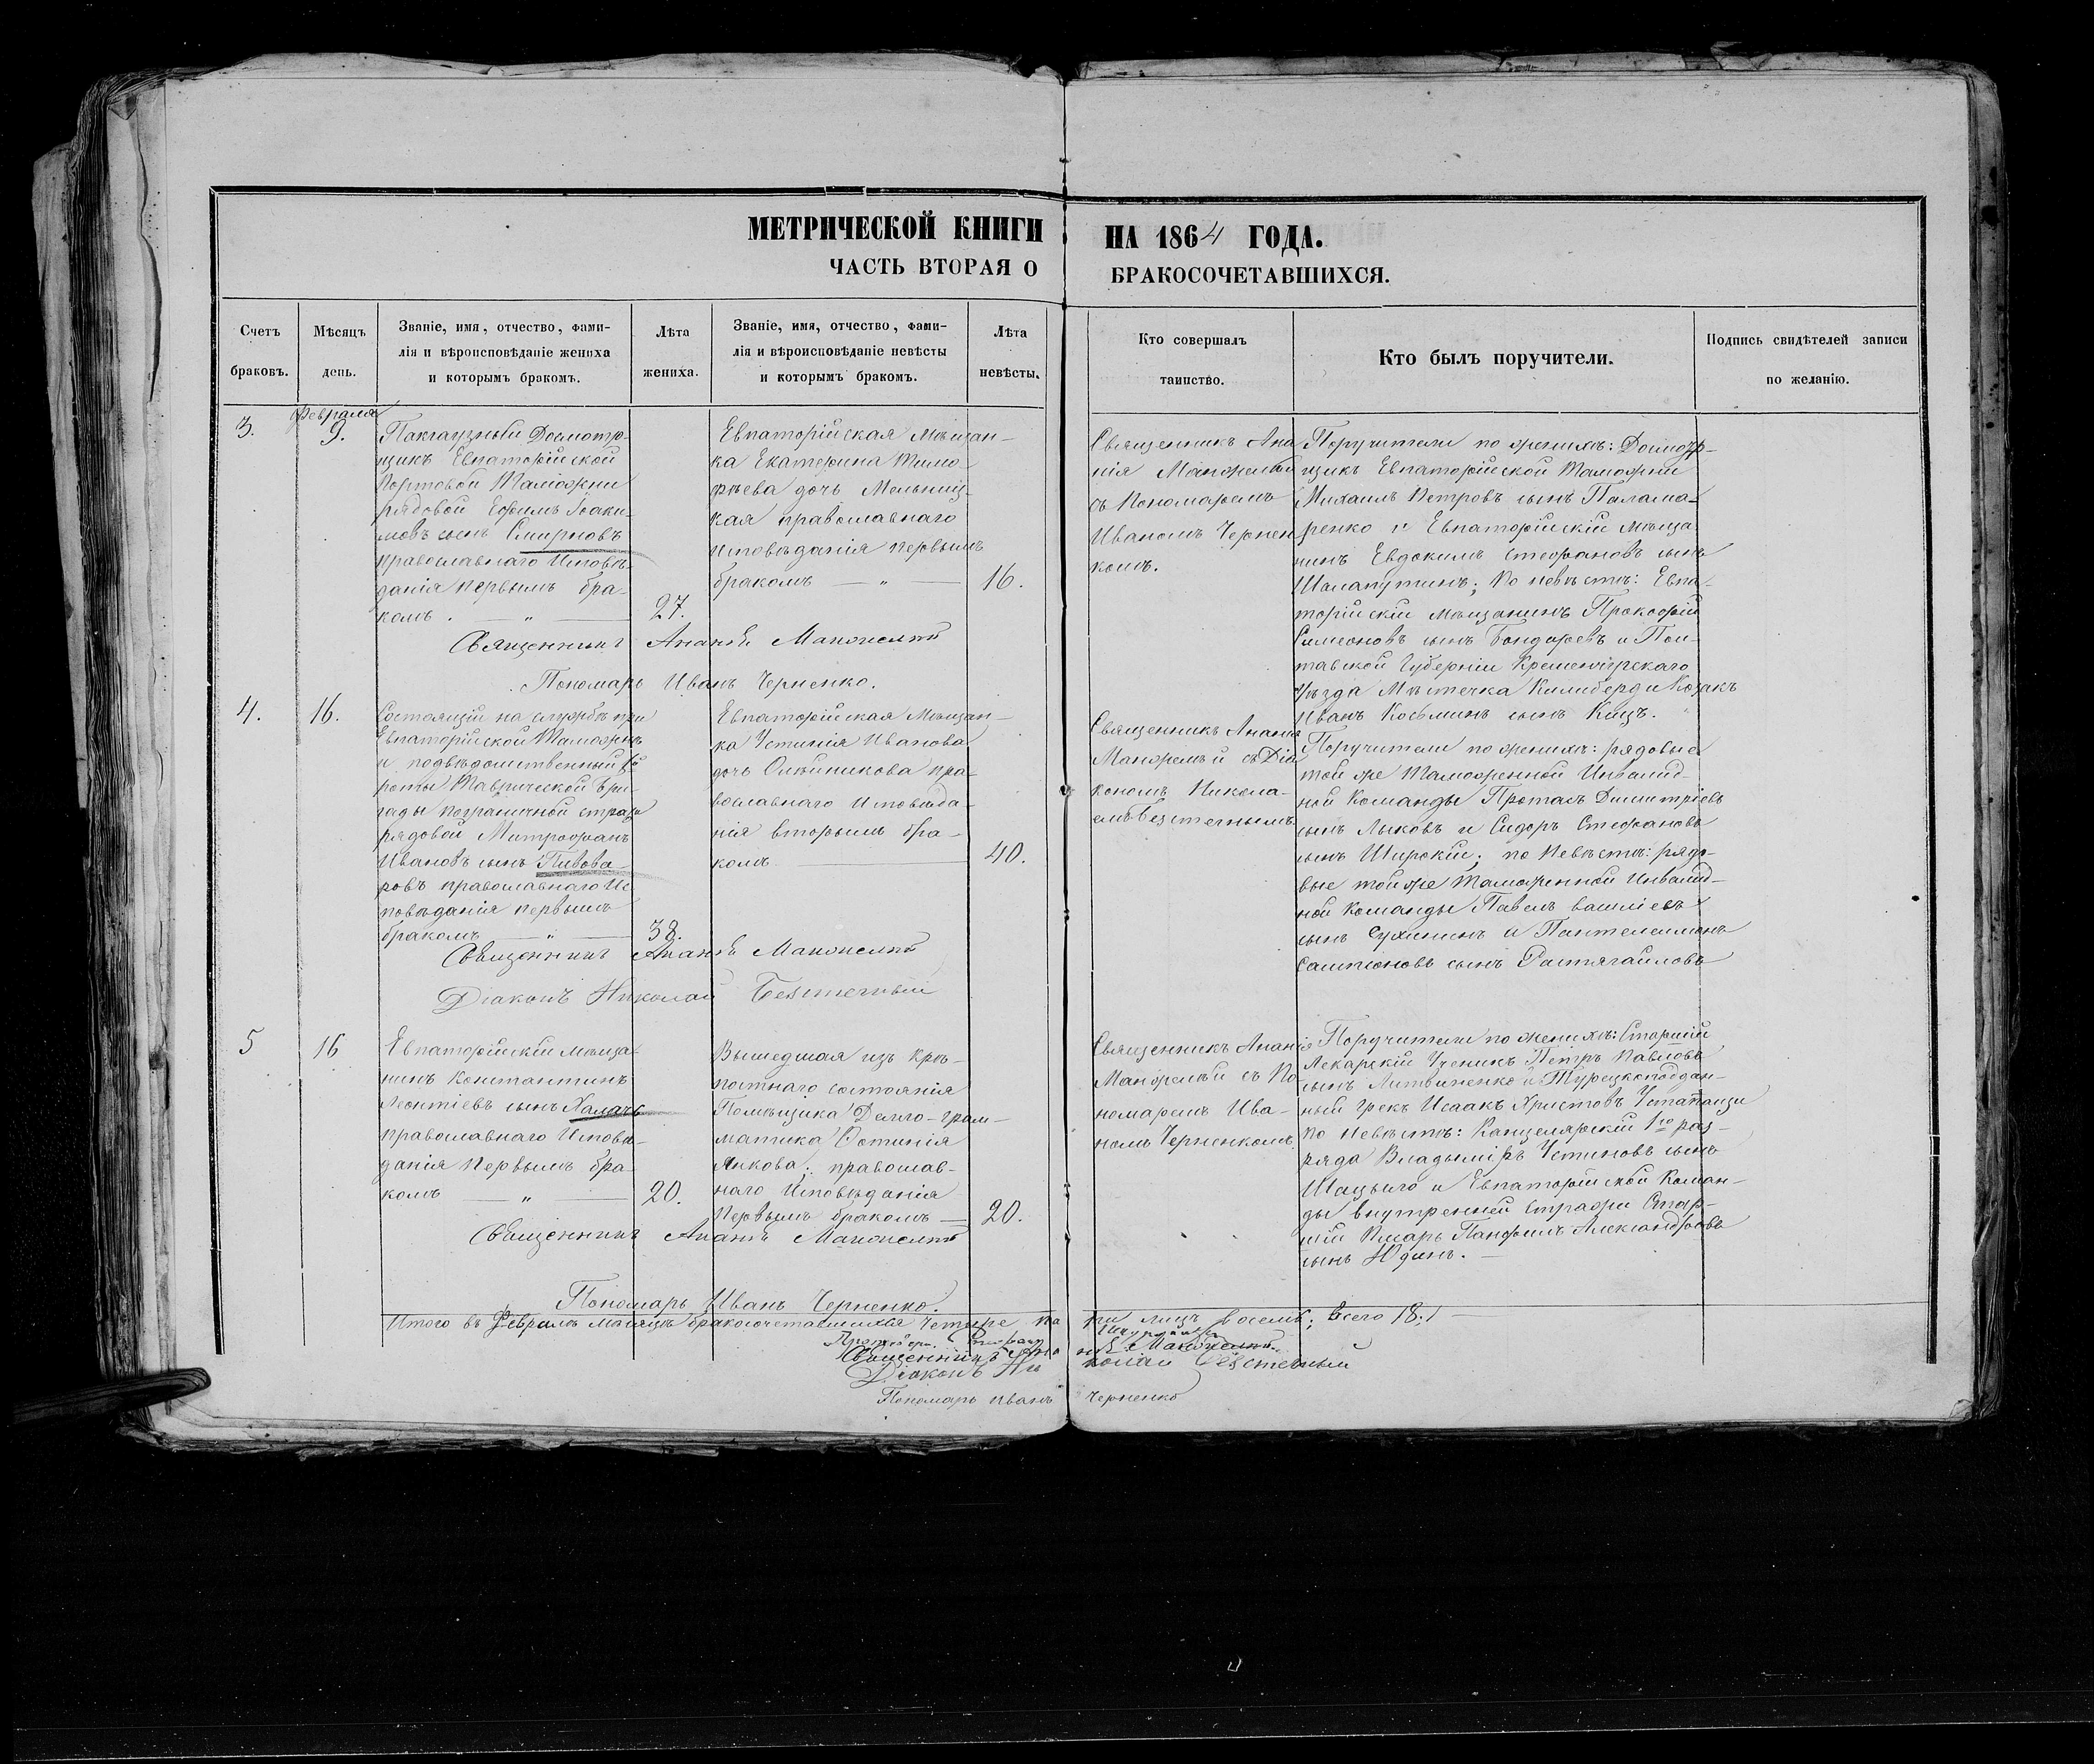 МЕТРИЧЕСКОЙ КНИГИ НА 1864 ГОДА.
ЧАСТЬ ВТОРАЯ О БРАКОСОЧЕТАВШИХСЯ.
Счетъ
браковъ.
Мѣсяцъ
день.
Званіе, имя, отчество, фами-
лія и вѣроисповѣданіе жениха
и которымъ бракомъ.
Лѣта
жениха.
Званіе, имя, отчество, фами-
лія и вѣроисповѣданіе невѣсты
и которымъ бракомъ.
Лѣта
невѣсты.
Кто совершалъ
таинство.
Кто былъ поручители.
Подпись свидѣтелей записи
по желанію.
3.
Февраля
9.
Пакгаузный Досмотр-
щикъ Евпаторійской
Портовой Таможни
рядовой Ефимъ Іоаки-
мовъ сынъ Смирновъ
православнаго Исповѣ-
данія первымъ бра-
комъ. — „ —
27.
Евпаторійская Мѣщан-
ка Екатерина Тимо-
фѣева дочь Мельниц-
кая православнаго
исповѣданія первымъ
бракомъ — „ —
16.
Священникъ Ана
нія Манжелѣй
съ Пономаремъ
Иваномъ Чернен
комъ.
Поручители по женихѣ: Досмотр-
щикъ Евпаторійской Таможни
Михаилъ Петровъ сынъ Палама-
ренко и Евпаторійскій мѣща
нинъ Евдокимъ Стефановъ сынъ
Шалапутинъ; По невѣстѣ: Евпа-
торійскій мѣщанинъ Прокофій
Симеоновъ сынъ Бондаревъ и Пол-
тавской Губерніи Кременчугскаго
Уѣзда Мѣстечка Килиберди Козакъ
Иванъ Косьминъ сынъ Кицъ.
Священникъ Ананія Манжелѣй
Пономарь Иванъ Черненко.
4.
16.
Состоящій на службѣ при
Евпаторійской Таможнѣ
и подвѣдомственный
роты Таврической Бри-
гады пограничной стражи
рядовой Митрофанъ
Ивановъ сынъ Пивова-
ровъ православнаго Ис
повѣданія первымъ
бракомъ — „ —
38.
Евпаторійская Мѣщан-
ка Устинія Иванова
дочь Олѣйникова пра-
вославнаго исповѣда-
нія вторымъ бра-
комъ —
40.
Священникъ Ананія
Манжелѣй съ Діа
кономъ Никола-
емъ Безстечнымъ
Поручители по женихѣ: рядовые
той же Таможенной Инвалид-
ной Команды Протасъ Димитріевъ
сынъ Лыковъ и Сидоръ Стефановъ
сынъ Широкій; по Невѣстѣ: рядо-
вые той же Таможенной Инвалид-
ной Команды Павелъ Василіевъ
сынъ Сухининъ и Пантелеимонъ
Сампсоновъ сынъ Растягайловъ
Священникъ Ананія Манжелѣй
Діаконъ Николай Безстечный
5
16
Евпаторійскій мѣща-
нинъ Константинъ
Леонтіевъ сынъ Халачъ
православнаго Исповѣ-
данія первымъ бра-
комъ — „ —
20.
Вышедшая изъ крѣ-
постнаго состоянія
Помѣщика Делло-грам-
матика Фотинія
Янкова; православ-
наго Исповѣданія
Первымъ бракомъ —
20.
Священникъ Ананія
Манжелѣй съ По-
номаремъ Ива-
номъ Черненкомъ
Поручители по женихѣ: Старшій
Лекарскій Ученикъ Петръ Павловъ
сынъ Литвиненко и Турецкоподдан-
ный грекъ Исаакъ Христовъ
По Невѣстѣ: Канцелярскій 1го раз-
ряда Владиміръ Устиновъ сынъ
и Евпаторійской Коман-
ды внутренней Стражи Стар-
шій Писарь Панфилъ Александровъ
сынъ Юдинъ. —
Священникъ Ананія Манжелѣй
Пономарь Иванъ Черненко.
Итого въ Февралѣ Мѣсяцѣ бракосочетавшихся четыре па
ры лицъ восемь; всего
Священникъ Ананія Манжелѣй
Діаконъ Николай Безстечный
Пономарь Иванъ Черненко